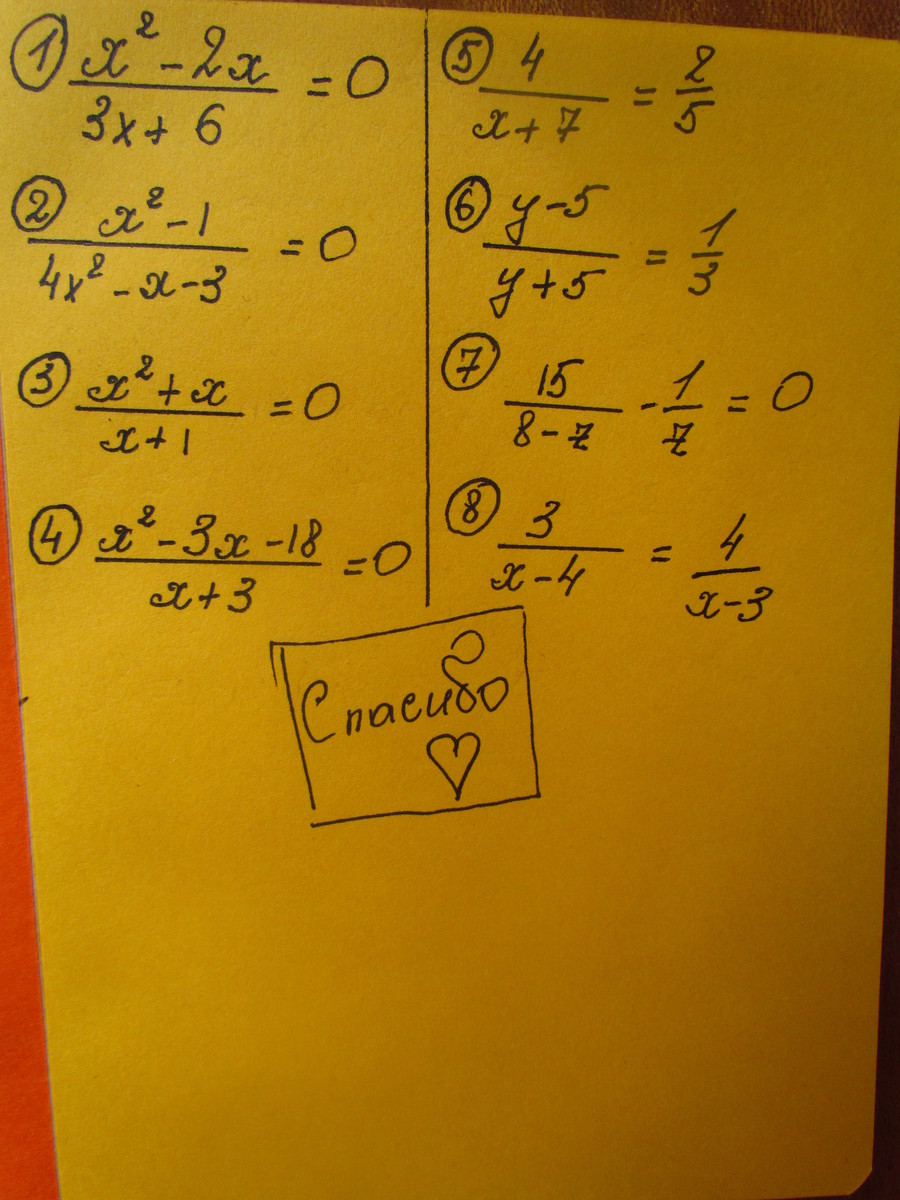 ① x² - 2x / 3x + 6 = 0
② x² - 1 / 4x² - x - 3 = 0
③ x² + x / x + 1 = 0
④ x² - 3x - 18 / x + 3 = 0
⑤ 4 / x + 7 = 2 / 5
⑥ y - 5 / y + 5 = 1 / 3
⑦ 15 / 8 - z - 1 / 7 = 0
⑧ 3 / x - 4 = 4 / x - 3
Спасибо